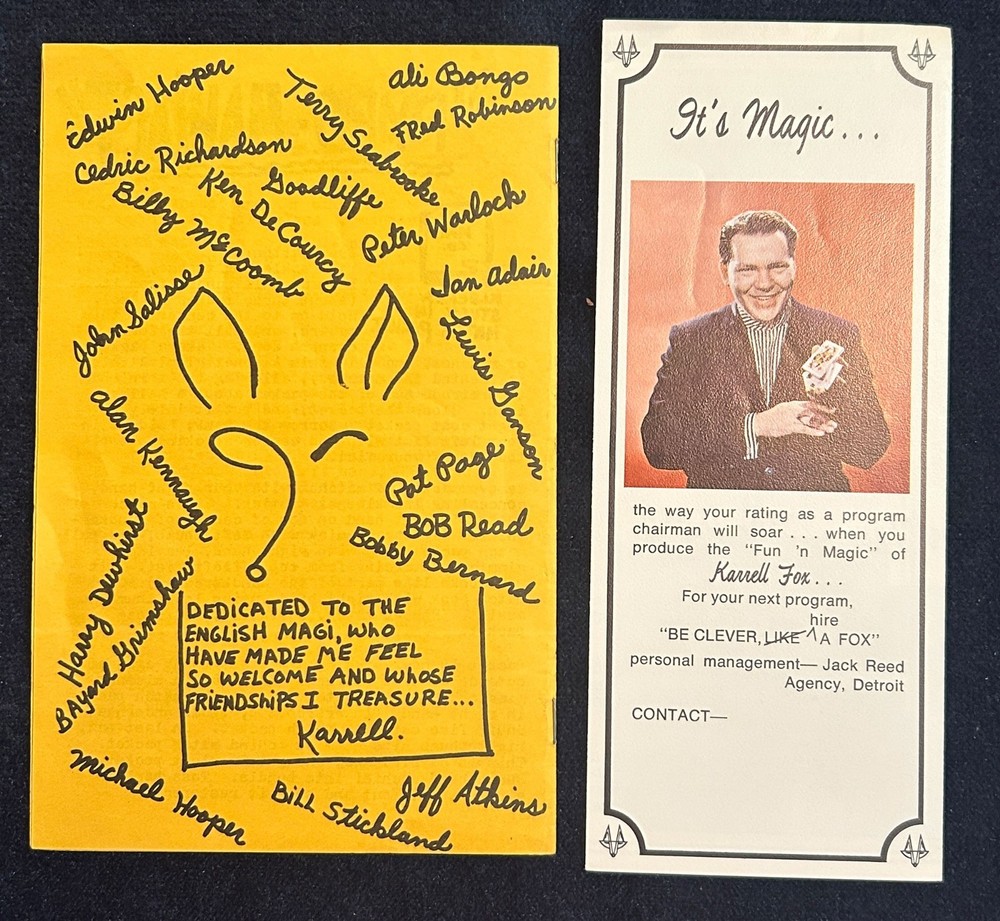 Edwin Hooper
Terry Seabrooke
Ali Bongo
Fred Robinson
Cedric Richardson
Goodliffe
Ken De Courcy
Billy McComb
Peter Warlock
Ian Adair
John Salisse
Lewis Ganson
Alan Kennaugh
Pat Page
BOB Read
Bobby Bernard
Harry Dewhirst
BAyard Grimshaw
DEDICATED TO THE
ENGLISH MAGI, WHO
HAVE MADE ME FEEL
SO WELCOME AND WHOSE
FRIENDSHIPS I TREASURE...
Karrell.
Michael Hooper
Bill Stickland
Jeff Atkins
It's Magic...
the way your rating as a program
chairman will soar . . . when you
produce the "Fun 'n Magic" of
Karrell Fox...
For your next program,
hire
"BE CLEVER, LIKE ^ A FOX"
personal management— Jack Reed
Agency, Detroit
CONTACT—